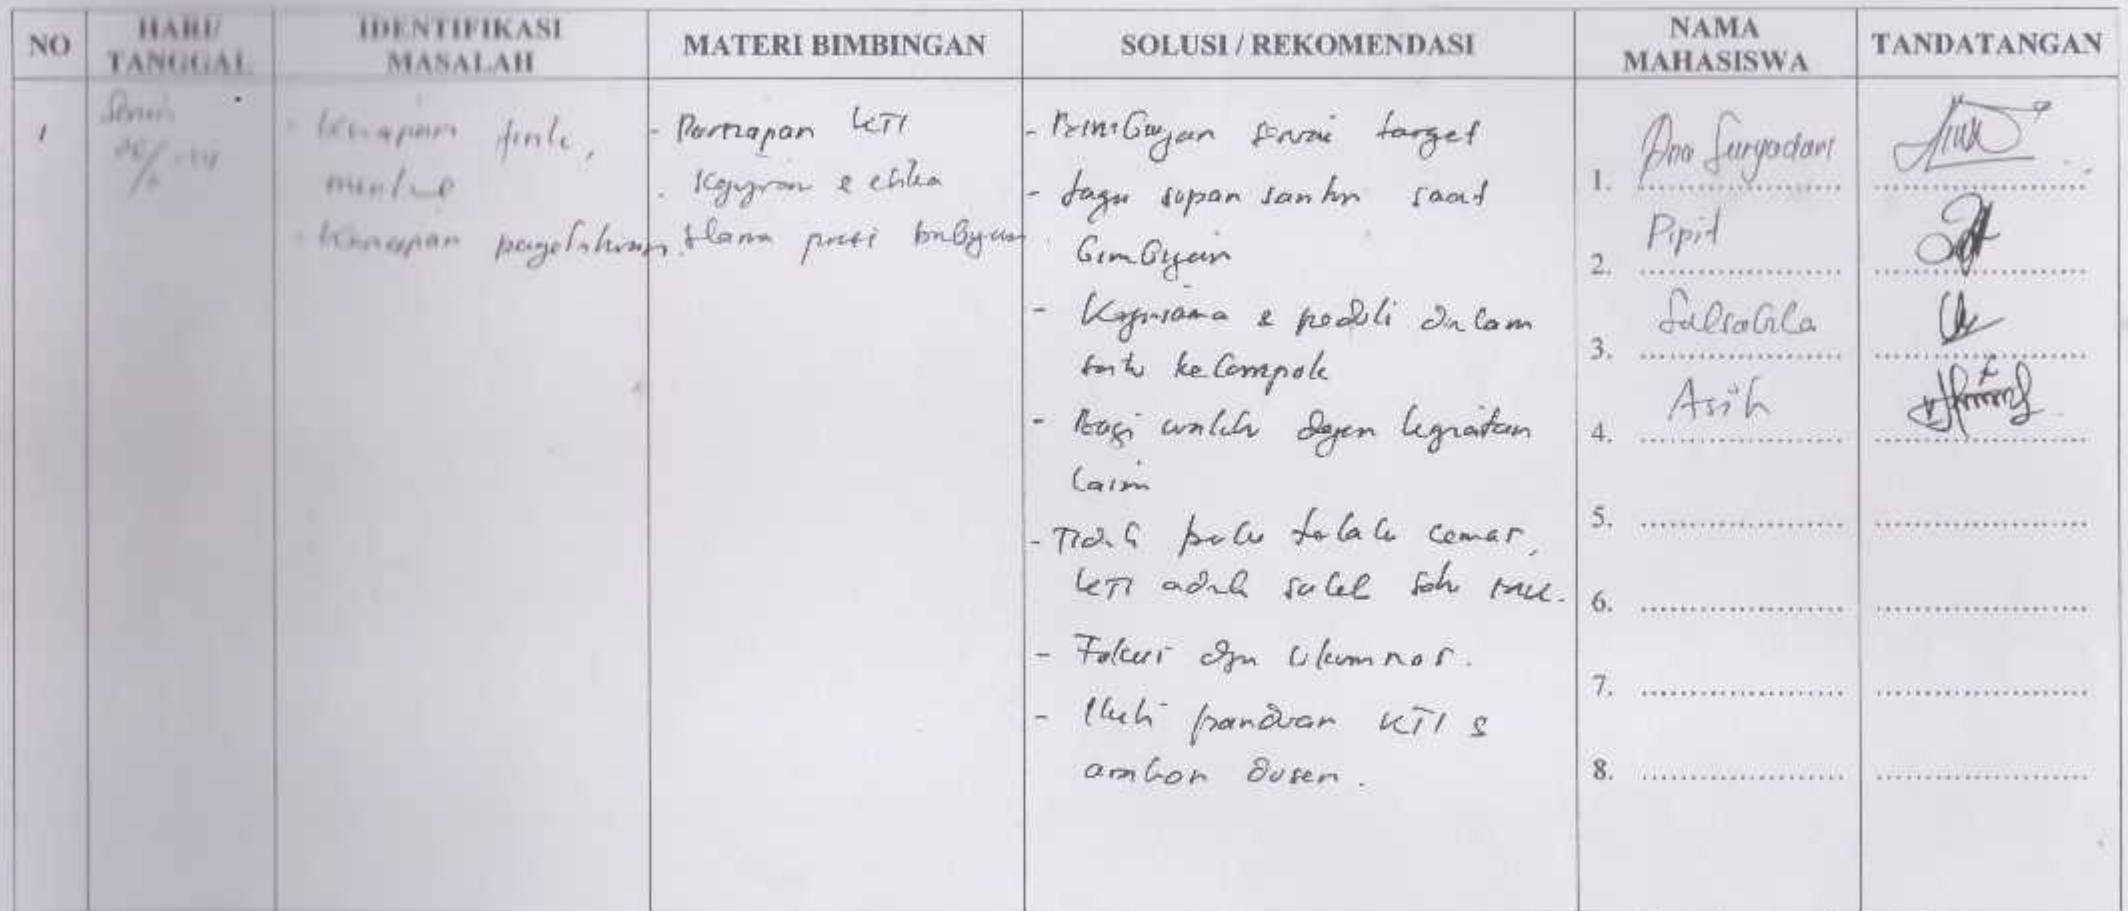 NO
HARI/
TANGGAL
IDENTIFIKASI
MASALAH
MATERI BIMBINGAN
SOLUSI / REKOMENDASI
NAMA
MAHASISWA
TANDATANGAN
1
Senin
- Kesiapan fisik,
mental
- Kesiapan pengetahuan
- Persiapan KTI
- Kejujuran & etika
selama proses bimbingan
- Bimbingan sesuai target
- Jaga sopan santun saat
bimbingan
- Kerjasama & peduli dalam
satu kelompok
- Bagi waktu dengan kegiatan
lain
- Tidak perlu terlalu cemas,
KTI adalah salah satu MK.
- Fokus dgn
- Ikuti panduan KTI &
arahan dosen.
1. Suryadari
2. Pipit
3. Salsabila
4. Asih
5.
6.
7.
8.